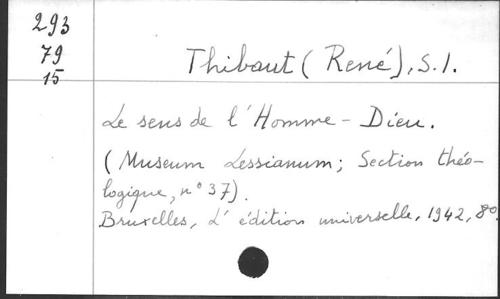 293
79
15
Thibaut (René), S.I.
Le sens de l'Homme-Dieu.
(Museum Lessianum; Section théo-
logique, n° 37).
Bruxelles, L'édition universelle, 1942, 8°.